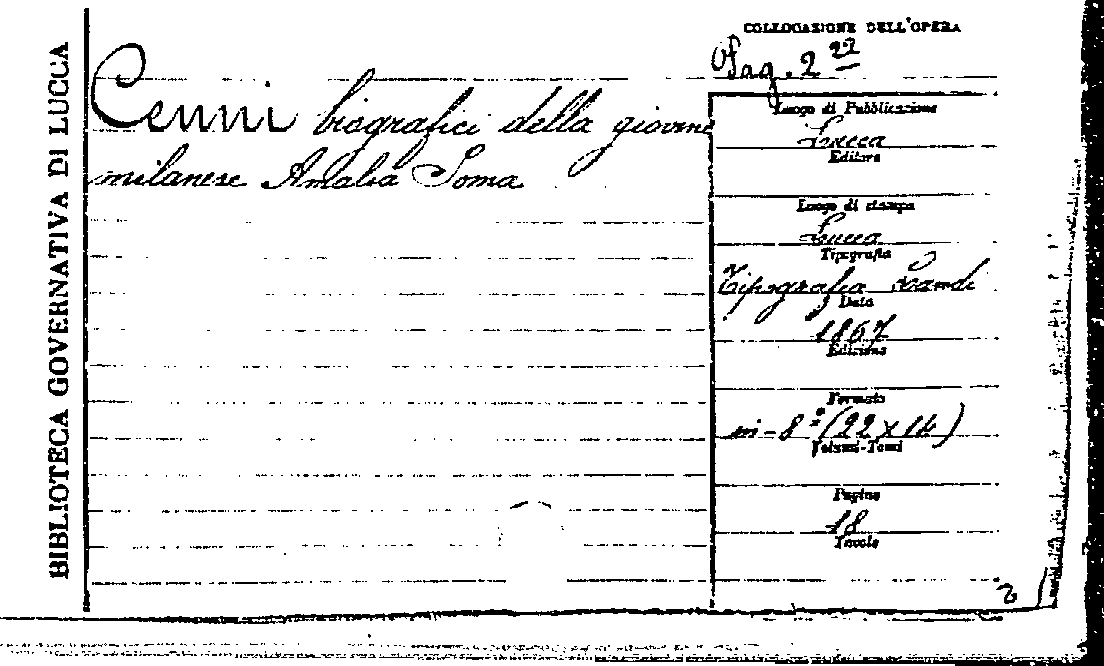 BIBLIOTECA GOVERNATIVA DI LUCCA
Cenni biografici della giovine
milanese Amalia Soma
COLLOCAZIONE DELL'OPERA
Pag. 2 22
Luogo di Pubblicazione
Lucca
Editore
Luogo di stampa
Lucca
Tipografia
Tipografia Landi
Data
1867
Edizione
Formato
in-8º (22 x 14)
Volumi-Tomi
Pagine
18
Tavole